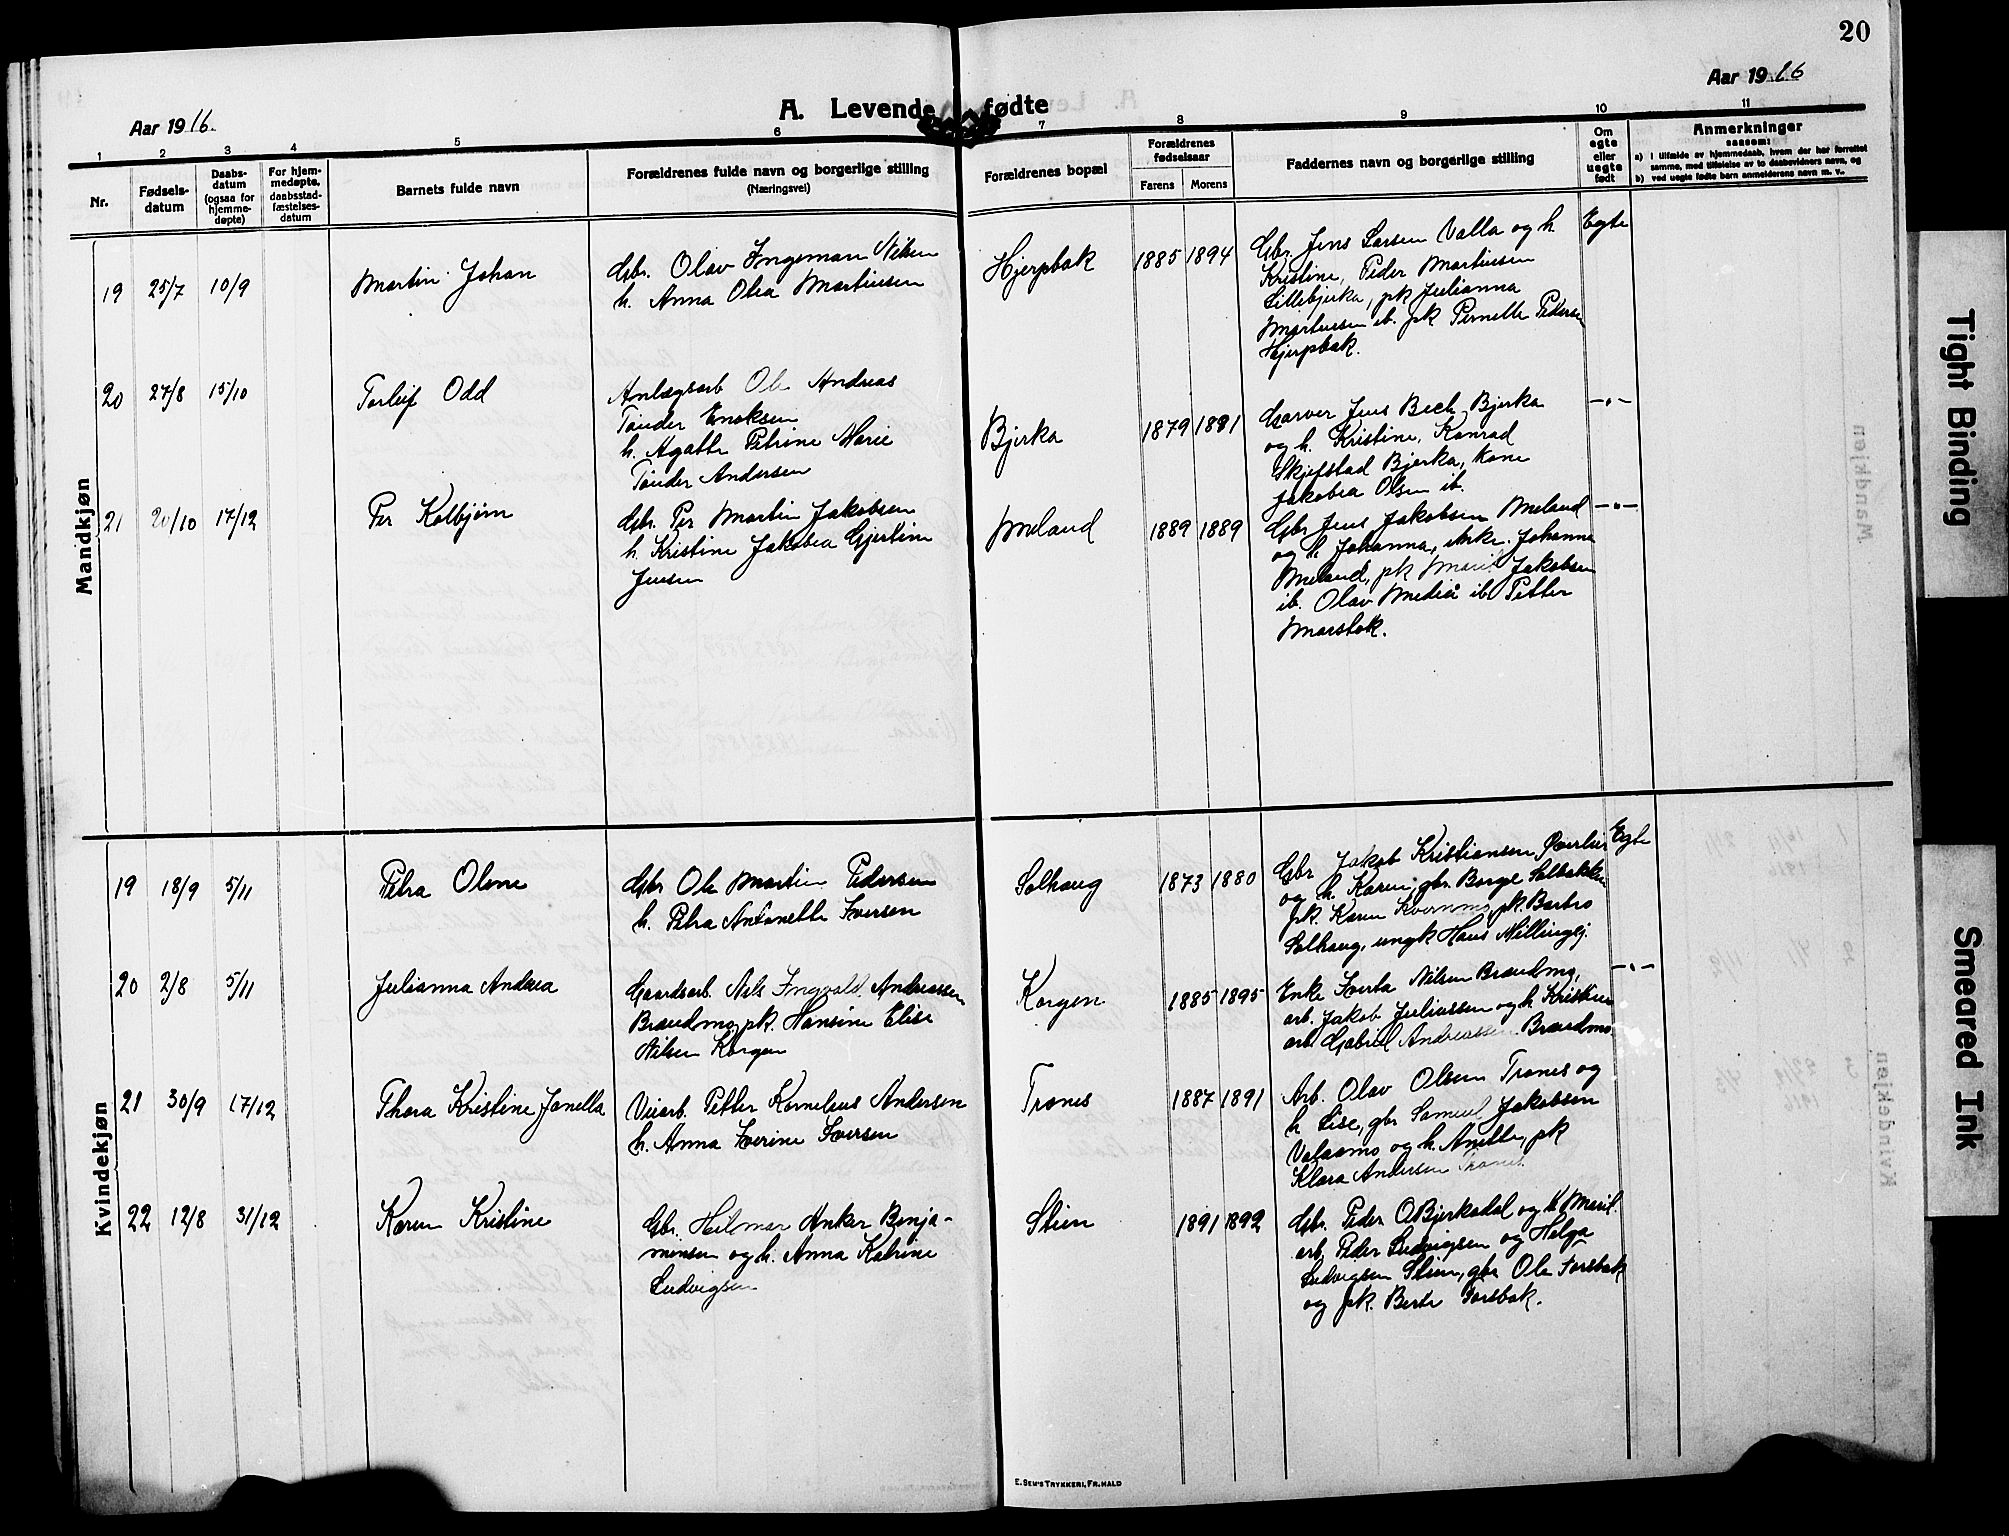 20
Aar 1916.
A. Levende fødte
Aar 1916
1 2 3 4 5 6 7 8 9 10 11
Nr.
Fødsels-
datum
Daabs-
datum
(ogsaa for
hjemme-
døpte)
For hjem-
medøpte,
daabsstad-
fæstelses-
datum
Barnets fulde navn
Forældrenes fulde navn og borgerlige stilling
(Næringsvei)
Forældrenes bopæl
Forældrenes
fødselsaar
Farens Morens
Faddernes navn og borgerlige stilling
Om
egte
eller
uegte
født
Anmerkninger
saasom:
a) i tilfælde av hjemmedaab, hvem der har forrettet
samme, med tilføielse av to daabsvidners navn, og
b) ved uegte fødte barn anmelderens navn m. v.
Mandkjøn
19 25/7 10/9 Martin Johan
Gbr. Olav Ingeman Nilsen
h. Anna Olea Martinsen
Hjerpbak 1885 1894
Gbr. Jens Larsen Valla og h
Kristine, Peder Martinsen
Lillebjerka, pk Julianna
Martinsen ib. pk Pernelle Pedersen
Hjerpbak.
Egte
20 27/8 15/10 Torleif Odd
Anlægsarb Ole Andreas
Tønder Enoksen
h. Agathe Petrine Marie
Tønder Andersen
Bjerka 1879 1881
Garver Jens Bech Bjerka
og h. Kristine, Konrad
Skjefstad Bjerka, Kone
Jakobea Olsen ib.
-"-
21 20/10 17/12 Per Kolbjørn
Gbr. Per Martin Jakobsen
h. Kristine Jakobea Gjertine
Jensen
Meland 1889 1889
Gbr Jens Jakobsen Meland
og h Johanna, enke Johanna
Meland, pk Marie Jakobsen
ib. Olav Medlie ib Petter
Marsbak.
-"-
Kvindekjøn
19 18/9 5/11 Petra Oline
Gbr Ole Martin Pedersen
h. Petra Antonette Iversen
Solhaug 1873 1880
Gbr Jakob Kristiansen Øverlier
og h. Karen, gbr. Borge Solbakken
pk. Karen Kvernmo, pk. Barbro
Solhaug, ungk Hans Mellingsj.
Egte
20 2/8 5/11 Julianna Andrea
Gaardsarb. Nils Ingvald Andreassen
Brandmo, pk. Hansine Elise
Nilsen Korgen
Korgen 1885 1895
Enke Iverta Nilsen Brandmo,
arb. Jakob Juliussen og h Kristine
arb Gabriel Andreassen Brandmo
-"-
21 30/9 17/12 Thora Kristine Jonella
Veiarb. Petter Kornelius Andersen
h. Anna Iverine Iversen
Tranes 1887 1891
Arb. Olav Olsen Tranes og
h Lise, gbr Samuel Jakobsen
Valaamo og h. Anette, pk
Klara Andersen Tranes.
22 12/8 31/12 Karen Kristine
Gbr. Hilmar Anker Benja-
minsen og h. Anna Katrine
Ludvigsen
Stien 1891 1892
Gbr. Peder O Bjerkadal og h Maril.
arb. Peder Ludvigsen og Helga
Ludvigsen Stien, gbr Ole Forsbak
og pk. Berte Forsbak.
E. Sem's Trykkeri, Fr.hald
Tight Binding
Smeared Ink